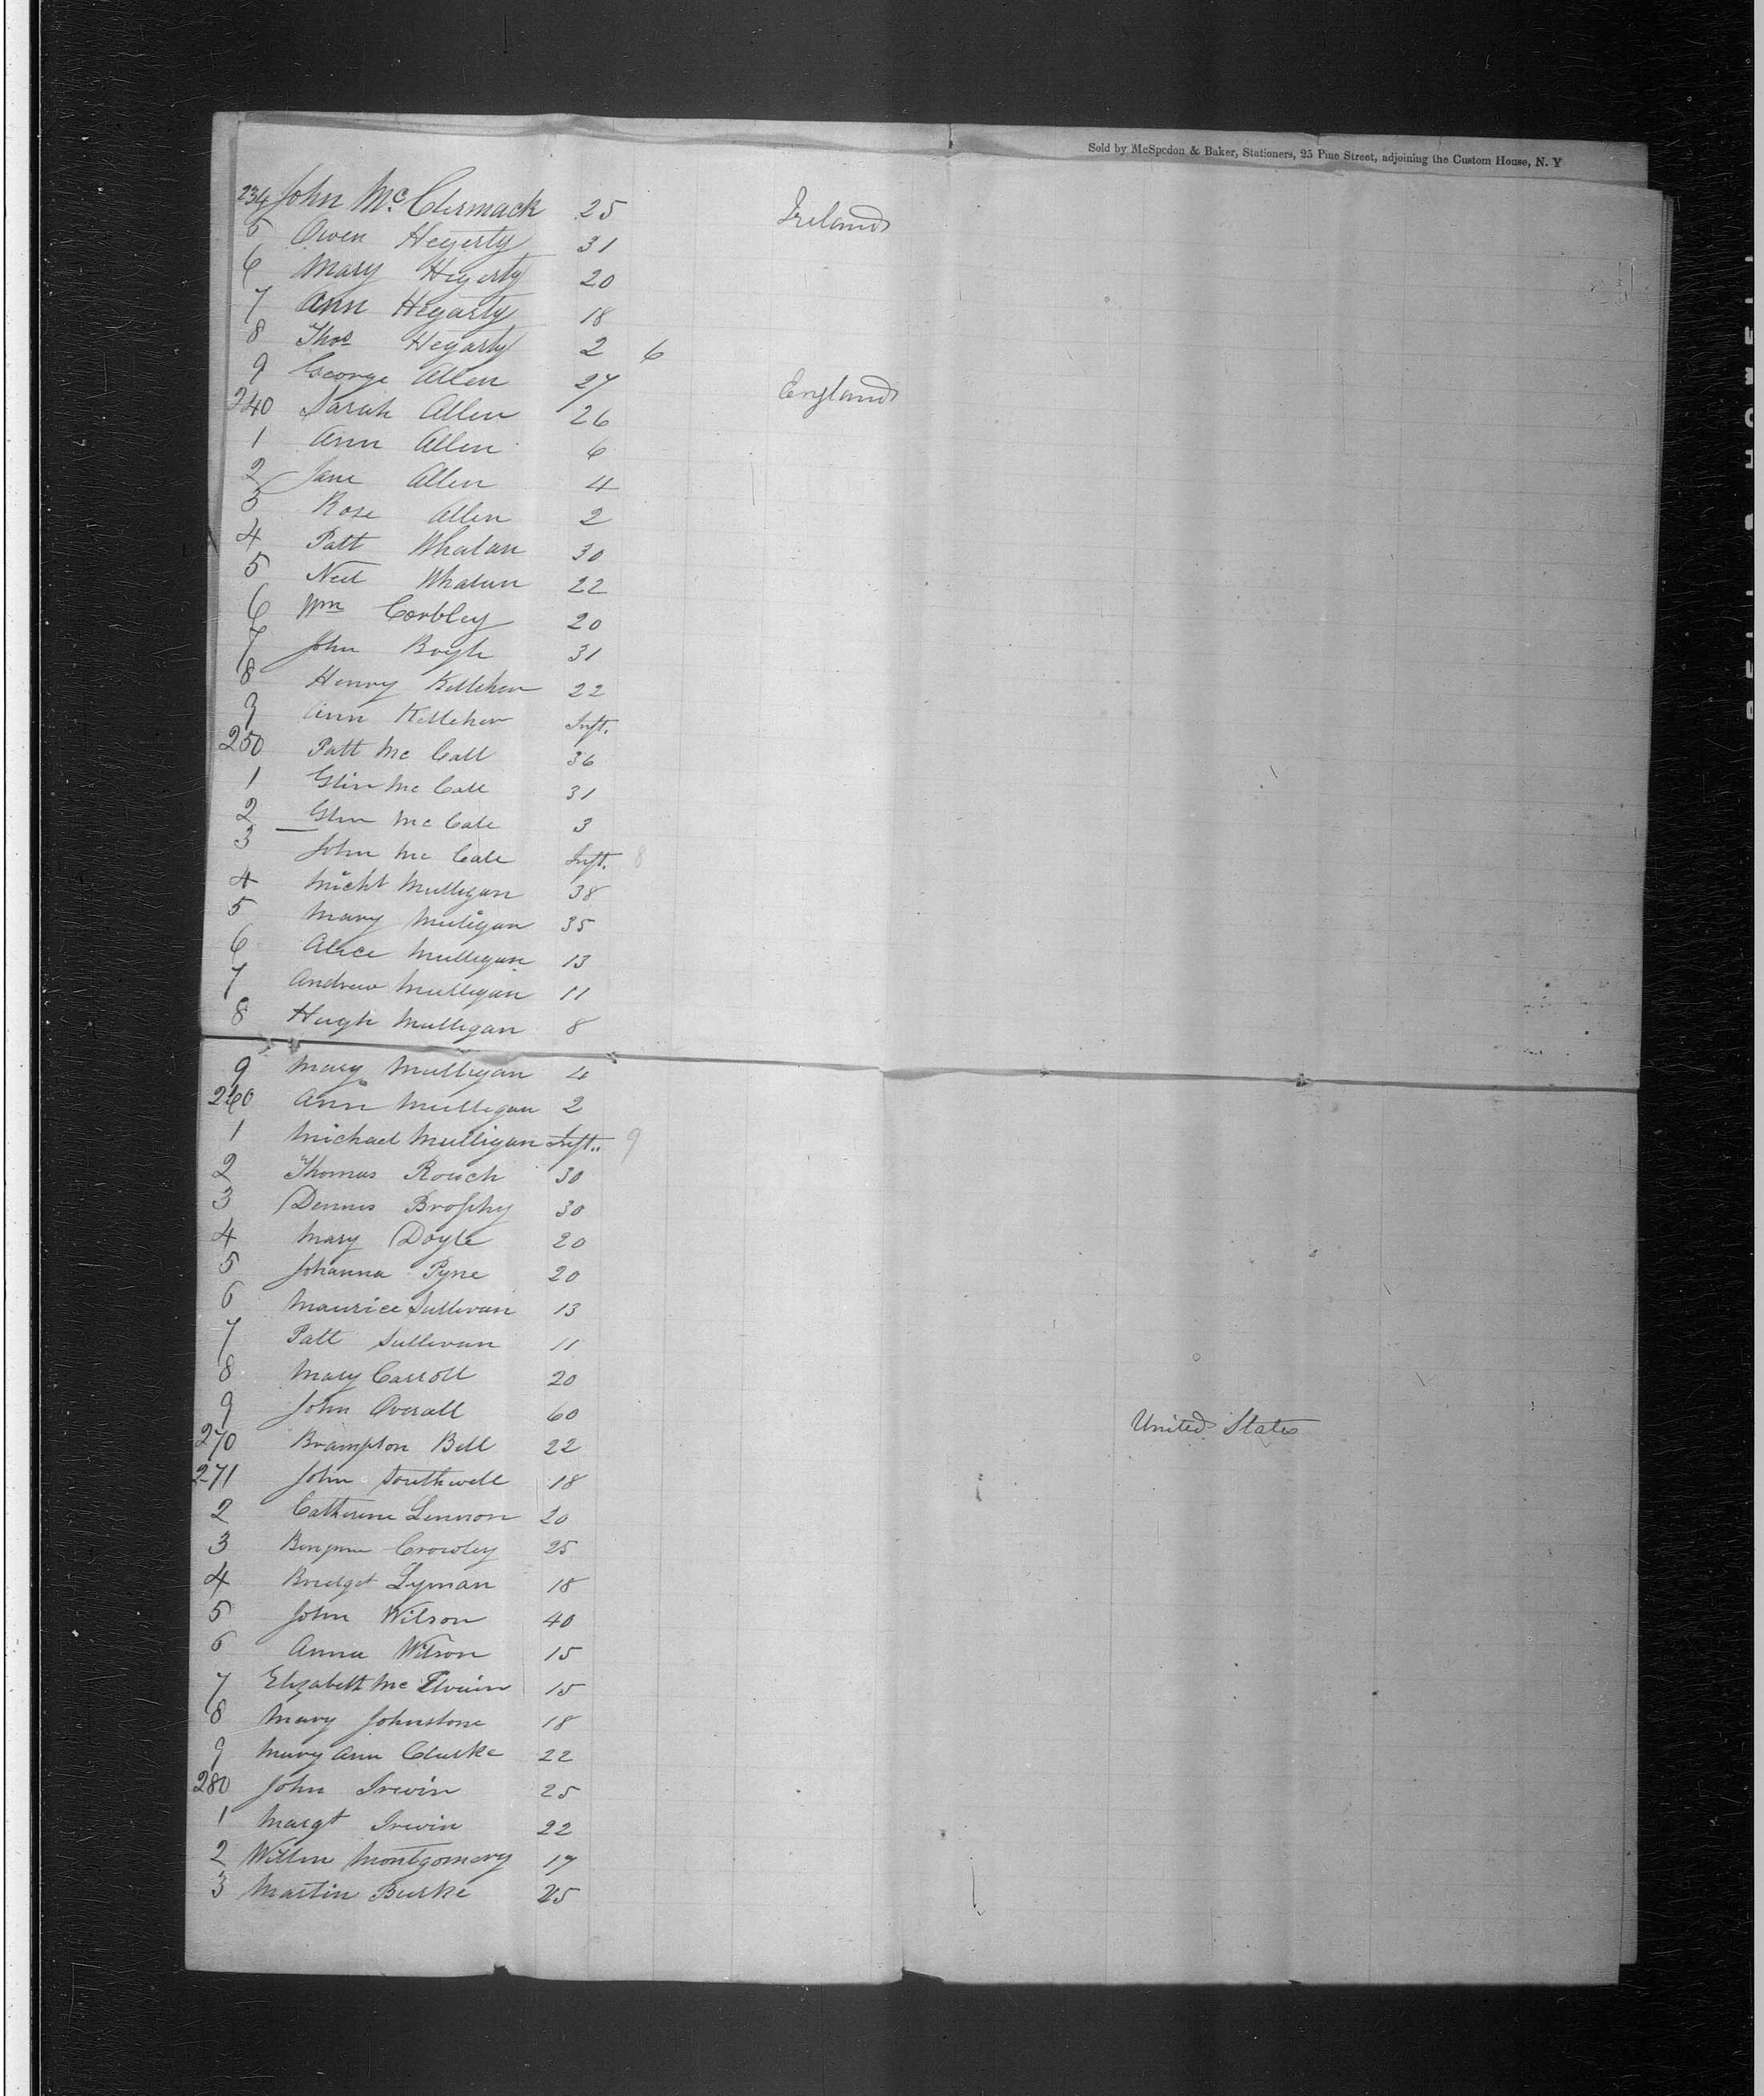 Sold by McSpedon & Baker, Stationers, 25 Pine Street, adjoining the Custom House, N. Y
234 John Mc Clermack 25 Ireland
5 Owen Hegerty 31
6 Mary Hegerty 20
7 Ann Hegarty 18
8 Thos Hegarty 2 6
9 George Allen 27 England
240 Sarah Allen 26
1 Ann Allen 6
2 Jane Allen 4
3 Rose Allen 2
4 Patt Whalan 30
5 Whalan 22
6 Wm Corbley 20
7 John Boyle 31
8 Henry Kelleher 22
9 Ann Kelleher Inft.
250 Patt Mc Call 36
1 Mc Call 31
2 Mc Call 3
3 John Mc Call Inft. 8
4 Michl Mulligan 38
5 Mary Muligan 35
6 Alice Mulligan 13
7 Andrew Mulligan 11
8 Hugh Mulligan 8
9 Mary Mulligan 4
260 Ann Mulligan 2
1 Michael Mulligan Inft. 9
2 Thomas Rouch 30
3 Dennis Brophy 30
4 Mary Doyle 20
5 Johanna Pyne 20
6 Maurice Sullivan 13
7 Patt Sullivan 11
8 Mary Carroll 20
9 John Overall 60 United States
270 Brampton Bell 22
271 John Southwell 18
2 Catherine Lennon 20
3 Crowley 25
4 Bridget Lyman 18
5 John Wilson 40
6 Anna Wilson 15
7 Elizabeth Mc Elvain 15
8 Mary Johnstone 18
9 Mary Ann Clarke 22
280 John Irwin 25
1 Margt Irwin 22
2 Willm Montgomery 17
3 Martin Burke 25